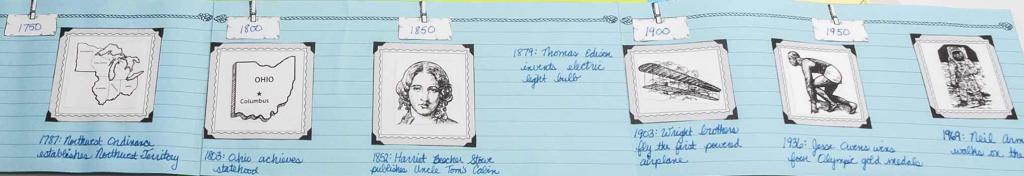 1750
1800
1850
1900
1950
OHIO
Columbus
1787: Northwest Ordinance
establishes Northwest Territory
1803: Ohio achieves
statehood
1852: Harriet Beecher Stowe
publishes Uncle Tom's Cabin
1879: Thomas Edison
invents electric
light bulb
1903: Wright brothers
fly the first powered
airplane
1936: Jesse Owens wins
four Olympic gold medals
1969: Neil Arm
walks on the